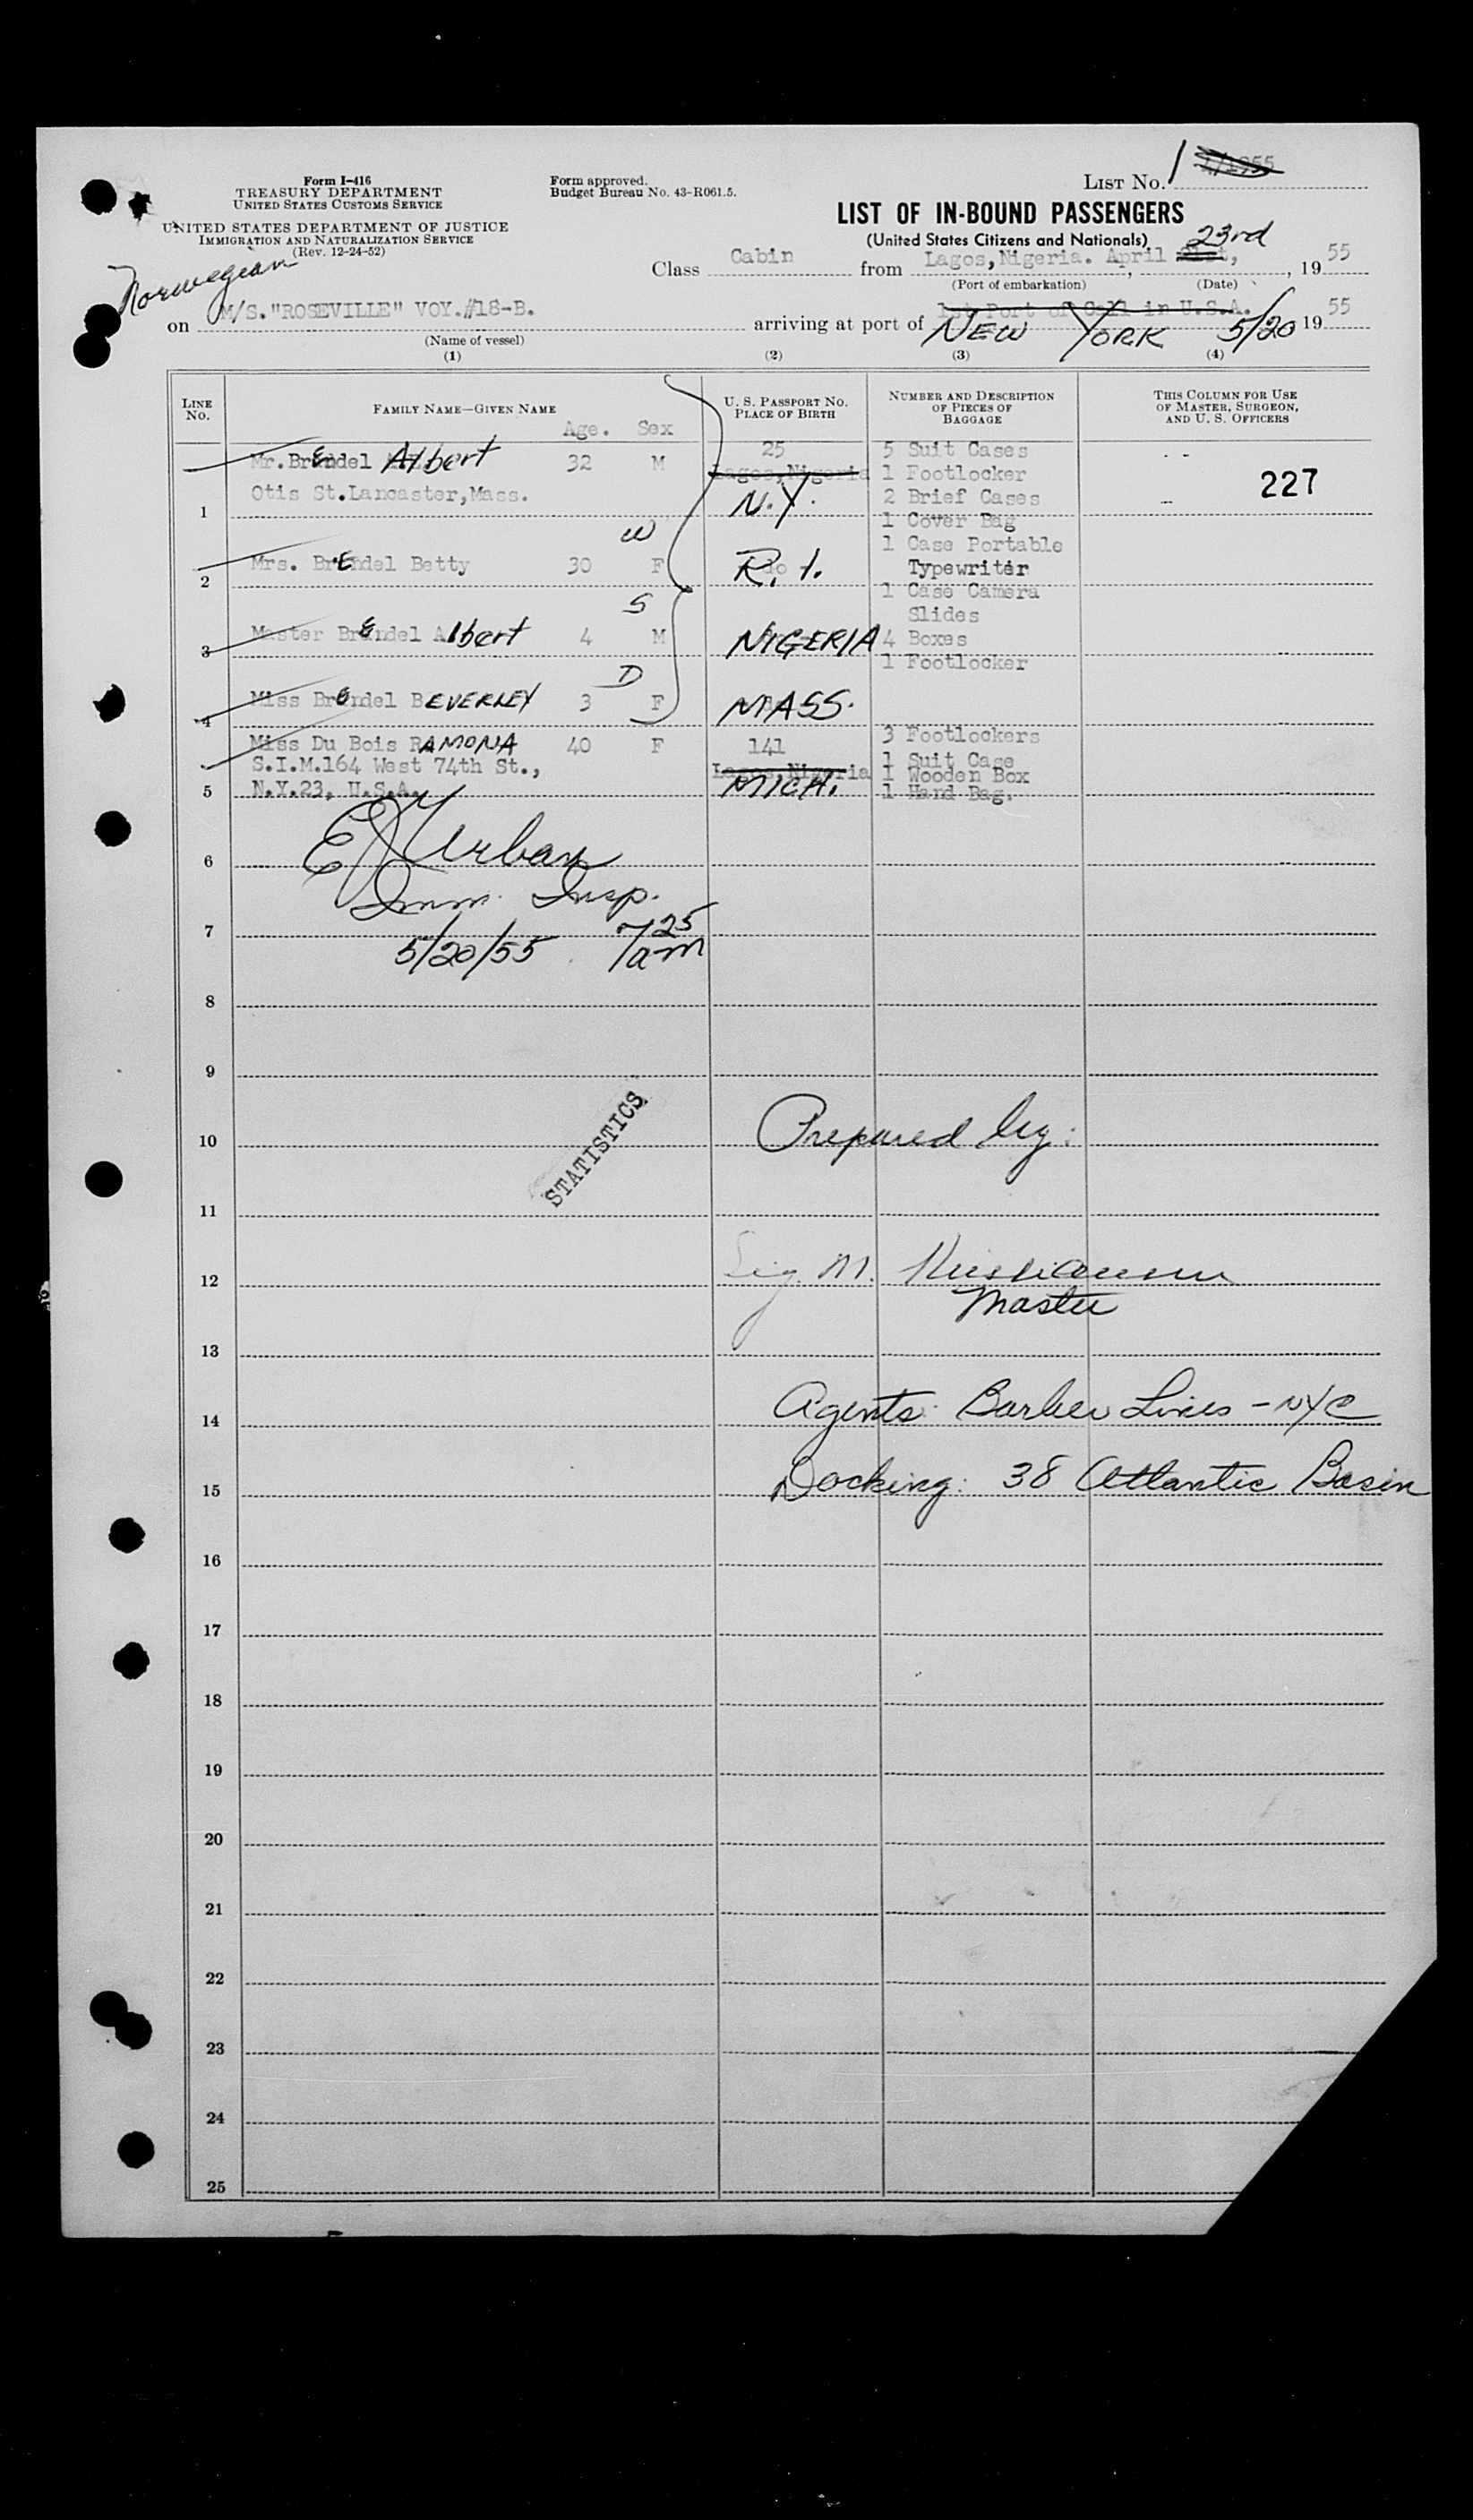 Form I-416
TREASURY DEPARTMENT
UNITED STATES CUSTOMS SERVICE
UNITED STATES DEPARTMENT OF JUSTICE
IMMIGRATION AND NATURALIZATION SERVICE
(Rev. 12-24-52)
Form approved.
Budget Bureau No. 43-R061.5.
LIST No. 1
LIST OF IN-BOUND PASSENGERS
(United States Citizens and Nationals)
Norwegian
Class Cabin from Lagos, Nigeria. April 23rd, 1955
(Port of embarkation) (Date)
on M/S."ROSEVILLE" VOY.#18-B. arriving at port of 1st Port of Call in U.S.A. NEW YORK 5/20 1955
(Name of vessel)
(1) (2) (3) (4)
LINE No.
FAMILY NAME—GIVEN NAME Age. Sex
U. S. PASSPORT NO. PLACE OF BIRTH
NUMBER AND DESCRIPTION OF PIECES OF BAGGAGE
THIS COLUMN FOR USE OF MASTER, SURGEON, AND U. S. OFFICERS
Mr. BrEndel Albert 32 M 25 5 Suit Cases
Lagos,Nigeria 1 Footlocker
Otis St.Lancaster,Mass. N.Y. 2 Brief Cases 227
1 1 Cover Bag
W 1 Case Portable
Mrs. BrEndel Betty 30 F R.I. Typewriter
2 1 Case Camera
S Slides
3 Master BrEndel Albert 4 M NIGERIA 4 Boxes
1 Footlocker
D
4 Miss BrEndel BEVERLEY 3 F MASS.
Miss Du Bois RAMONA 40 F 141 3 Footlockers
S.I.M.164 West 74th St., Lagos,Nigeria 1 Suit Case
1 Wooden Box
5 N.Y.23, U.S.A. MICH. 1 Hand Bag.
6 E J Urban
Imm. Insp.
7 5/20/55 7 25 am
8
9
10 Prepared by:
STATISTICS
11
12 Sig. M. Kristiansen
Master
13
14 Agents: Barber Lines - NYC
15 Docking: 38 Atlantic Basin
16
17
18
19
20
21
22
23
24
25